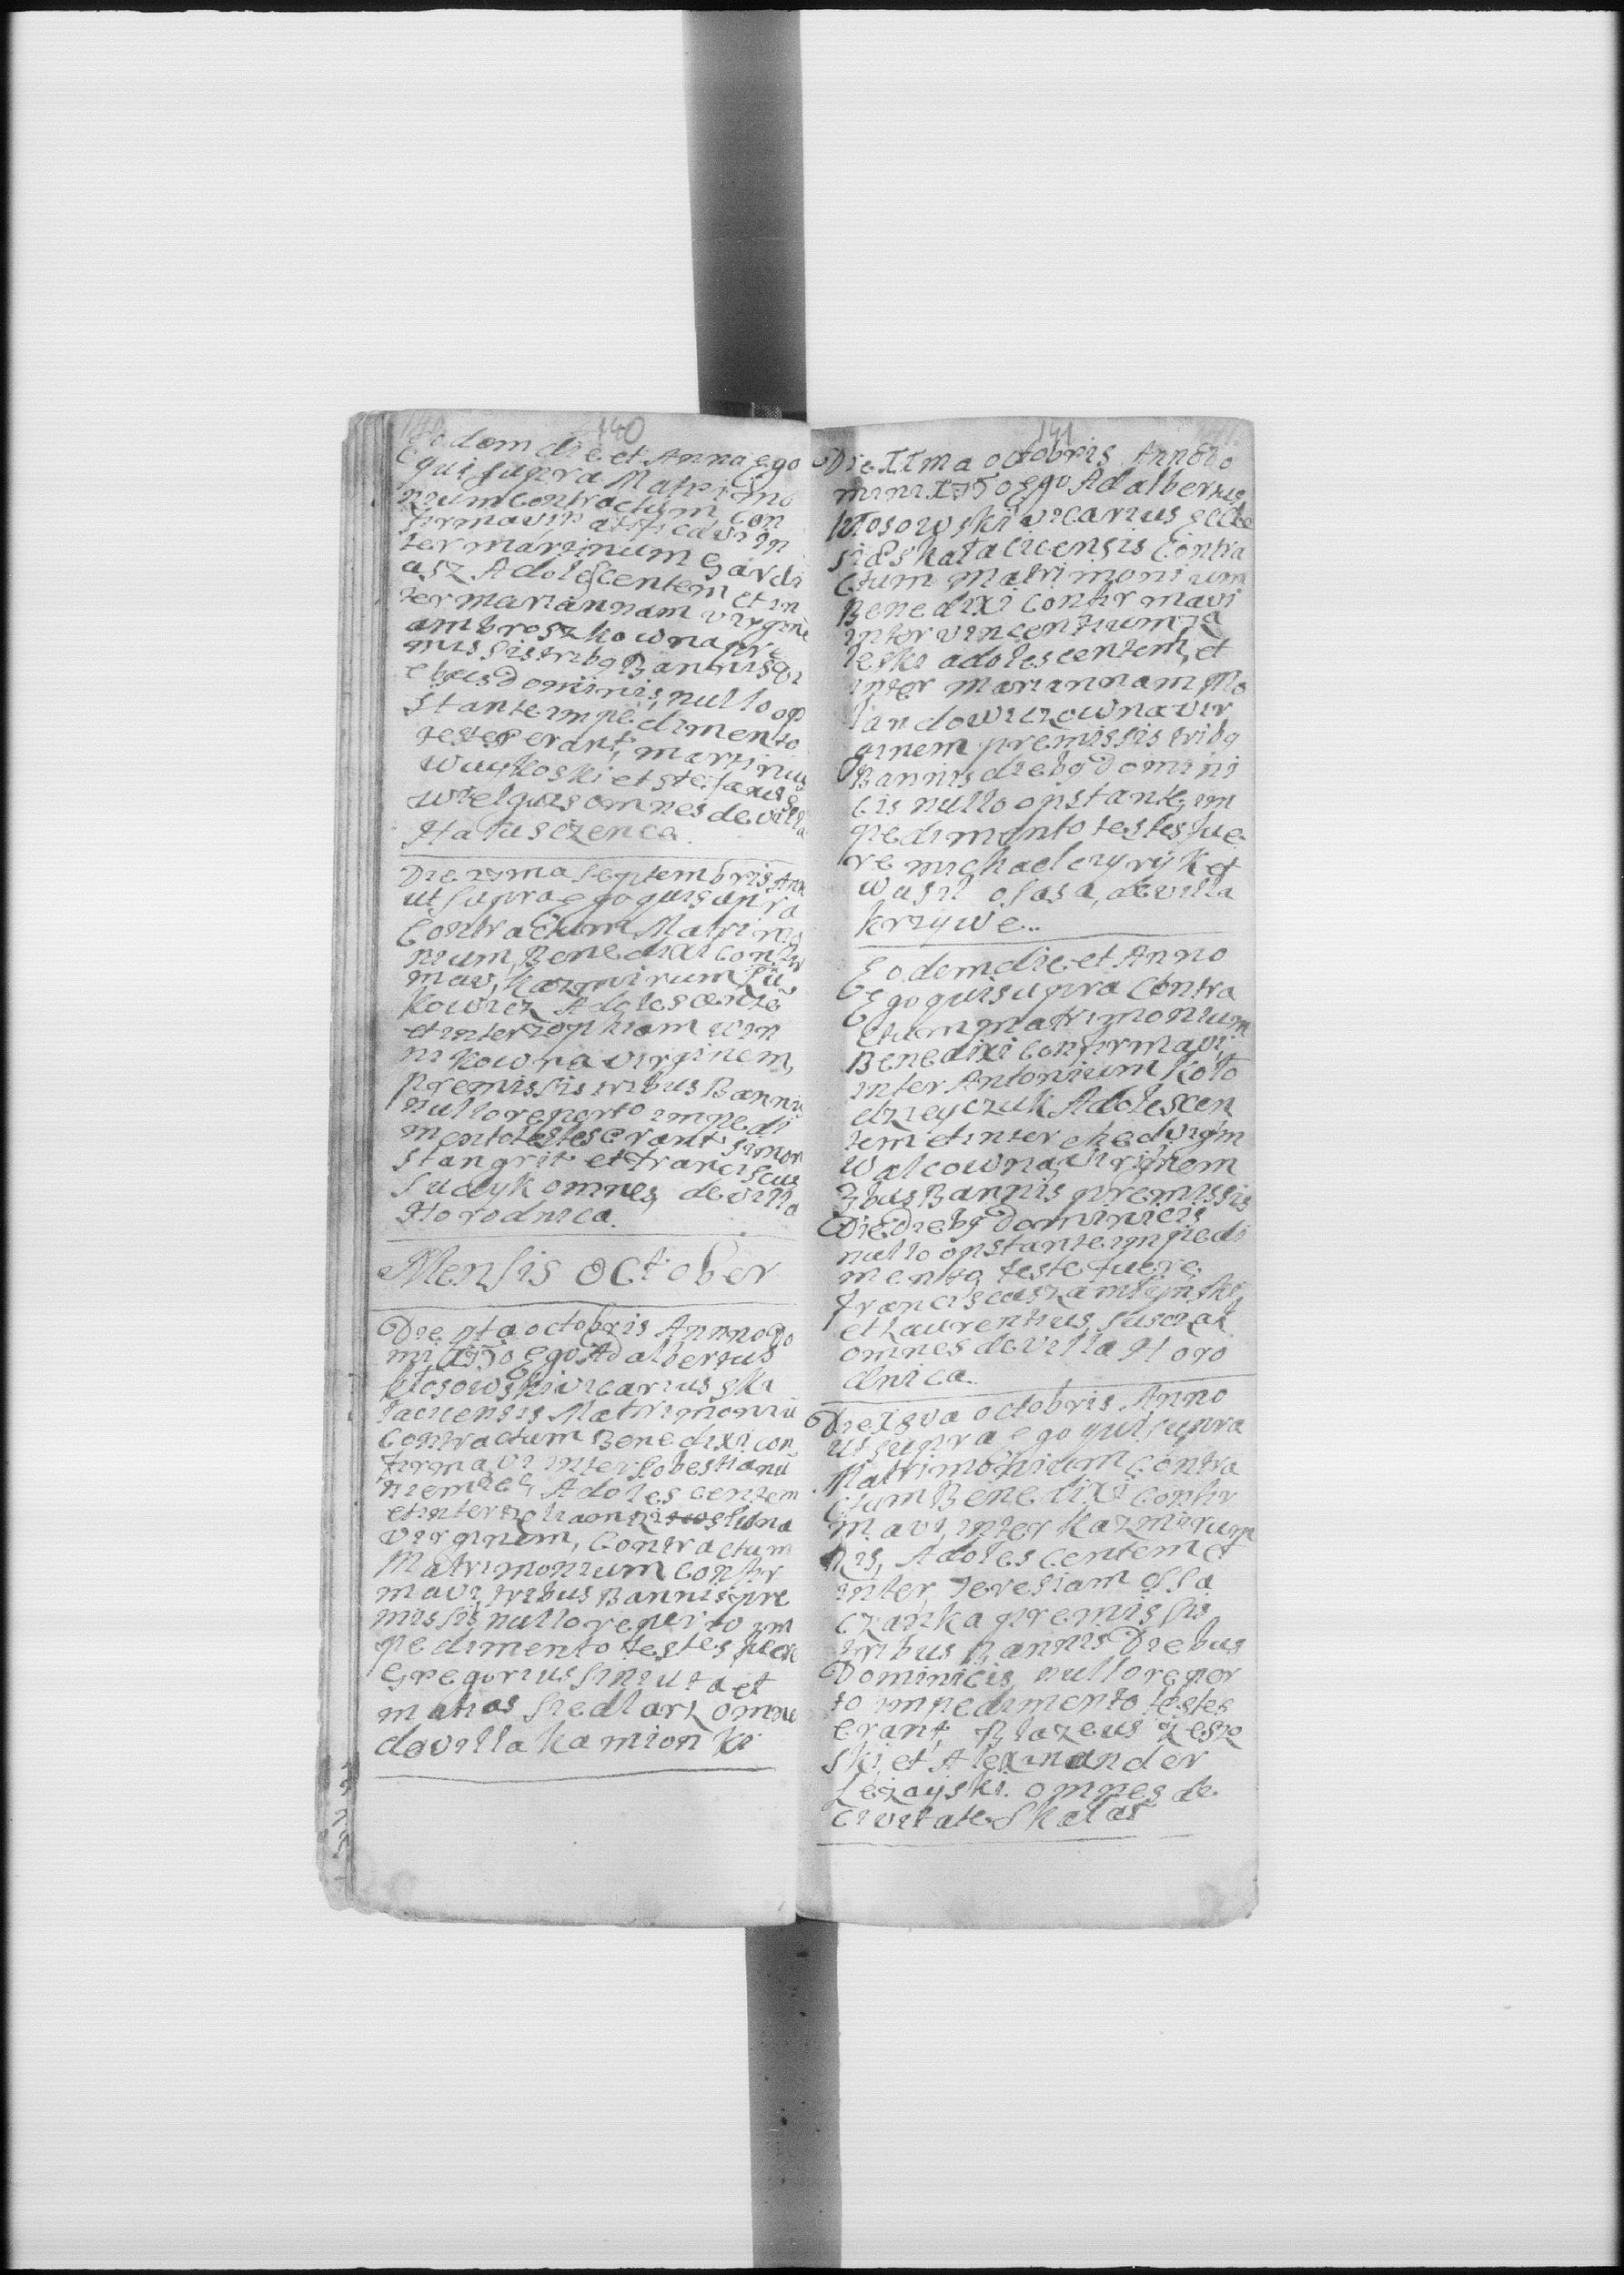 140
Eodem die et Anno ego
qui supra Matrimo
nium contractum con
firmavi ratificavi in
ter martinum Gardi
asz Adolescentem et in
ter mariannam virginē
ambroszkowna pre
missis tribq Bannis di
ebus Dominis, nullo op
stante impedimento
testes erant, martinus
Wuytkoski et Stefanus
wielgus omnes de villa
Hatusczenca.
Die 27ma septembris Ann
ut supra ego qui supra
Contractum Matrimo
nium, Benedixi confir
mavi, Kazmirum
kowicz Adolescentē
et inter zophiam win
nikowna virginem,
premissis tribus Bannis
nullo reperto impedi
mento testes erant simon
stangrit et franciscus
Sudyk omnes de villa
Horodnica.
Mensis October
Die 4ta octobris Anno Do
mi 1750 Ego Adalbertus
kłosowski vicarius ska
lacicensis Matrimoniū
contractum Benedixi con
firmavi inter Sobestianū
niemiec, Adolescentem
et inter
virginem, Contractum
Matrimonium confir
mavi, tribus Bannis pre
missis, nullo reperto im
pedimento testes fuere
Gregorius siniuta et
matias siedlarz omnes
de villa kamionki
141
Die XIma octobris Anno Do
mini 1750 ego Adalbertus
kłosowski vicarius eccle
siæ skałacicensis Contra
ctum matrimonium
Benedixi confirmavi
inter vincentium za
leski adolescentem, et
inter mariannam Mo
landowiczowna vir
ginem premissis tribq
Bannis diebq Domini
cis nullo opstante im
pedimento testes fue
re michael czyryk et
wasil osasa, de villa
krzywe..
Eodem die et Anno
Ego qui supra Contra
ctum matrimonium
Benedixi confirmavi
inter Antonium Koło
dzieyczuk Adolescen
tem et inter chedvigim
walcowna virginem
3bus Bannis premissis
Die Diebq Dominicis
nullo opstante impedi
mento teste fuere
franciscus zamłynski
et Laurentius suszczak
omnes de villa Horo
dnica..
Die 18va octobris Anno
ut supra ego qui supra
Matrimonium contra
ctum Benedixi confir
mavi, inter kazmirum
lis, Adolescentem et
inter teresiam ossa
czanka premissis
tribus Bannis Diebus
Dominicis, nullo reper
to impedimento testes
erant Blazeus
ski, et Alexinander
Lezayski. omnes de
civitate Skałat